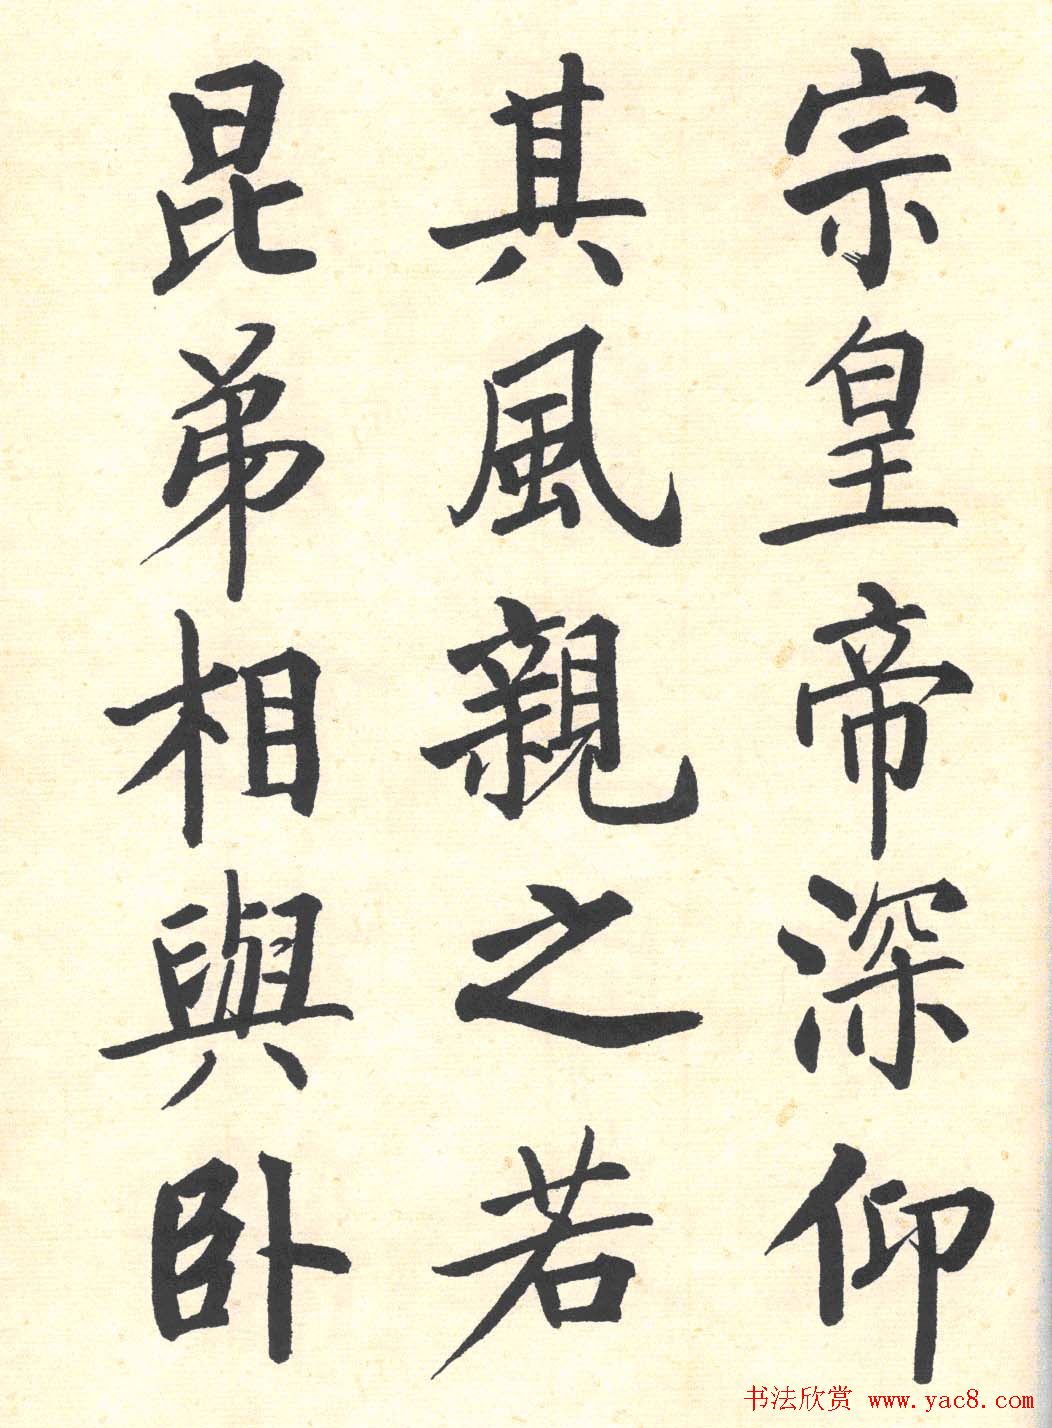 宗皇帝深仰
其風親之若
昆弟相與卧
书法欣赏 www.yac8.com